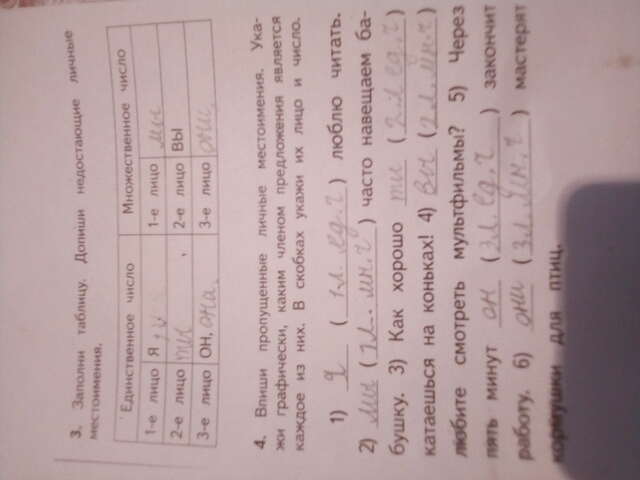 3. Заполни таблицу. Допиши недостающие личные
местоимения.
Единственное число Множественное число
1-е лицо Я 1-е лицо мы
2-е лицо ты , 2-е лицо ВЫ
3-е лицо ОН, она, 3-е лицо они
4. Впиши пропущенные личные местоимения. Ука-
жи графически, каким членом предложения является
каждое из них. В скобках укажи их лицо и число.
1) я ( 1л. ед. ч ) люблю читать.
2) мы ( 1л. мн. ч ) часто навещаем ба-
бушку. 3) Как хорошо ты ( 2л. ед. ч )
катаешься на коньках! 4) Вы ( 2л. мн. ч )
любите смотреть мультфильмы? 5) Через
пять минут он ( 3л. ед. ч ) закончит
работу. 6) они ( 3л. мн. ч ) мастерят
кормушки для птиц.